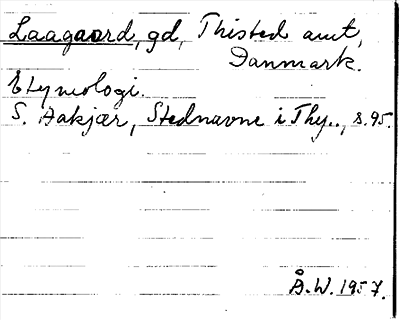 Laagaard, gd, Thisted amt,
Danmark.
Etymologi.
S. Aakjær, Stednavne i Thy.., s. 95.
Å.W. 1957.